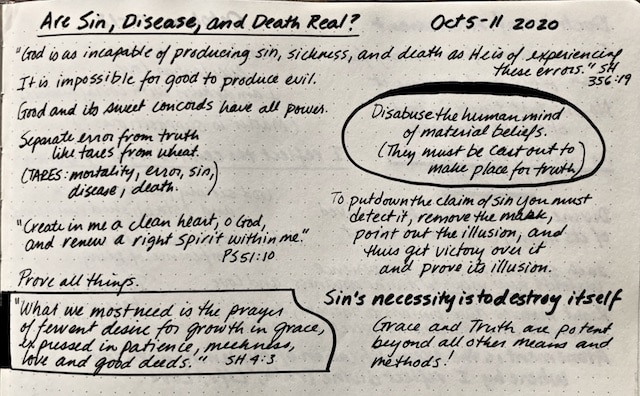 Are Sin, Disease, and Death Real? Oct 5-11 2020
"God is as incapable of producing sin, sickness, and death as He is of experiencing
these errors." SH
356:19
It is impossible for good to produce evil.
God and its sweet concords have all power.
Separate error from truth
like tares from wheat.
(TARES: mortality, error, sin,
disease, death.)
"Create in me a clean heart, O God,
and renew a right spirit within me."
PS 51:10
Prove all things.
"What we most need is the prayer
of fervent desire for growth in grace,
expressed in patience, meekness,
love and good deeds." SH 4:3
Disabuse the human mind
of material beliefs.
(They must be cast out to
make place for truth)
To put down the claim of sin you must
detect it, remove the mask,
point out the illusion, and
thus get victory over it
and prove its illusion.
Sin's necessity is to destroy itself
Grace and Truth are potent
beyond all other means and
methods!